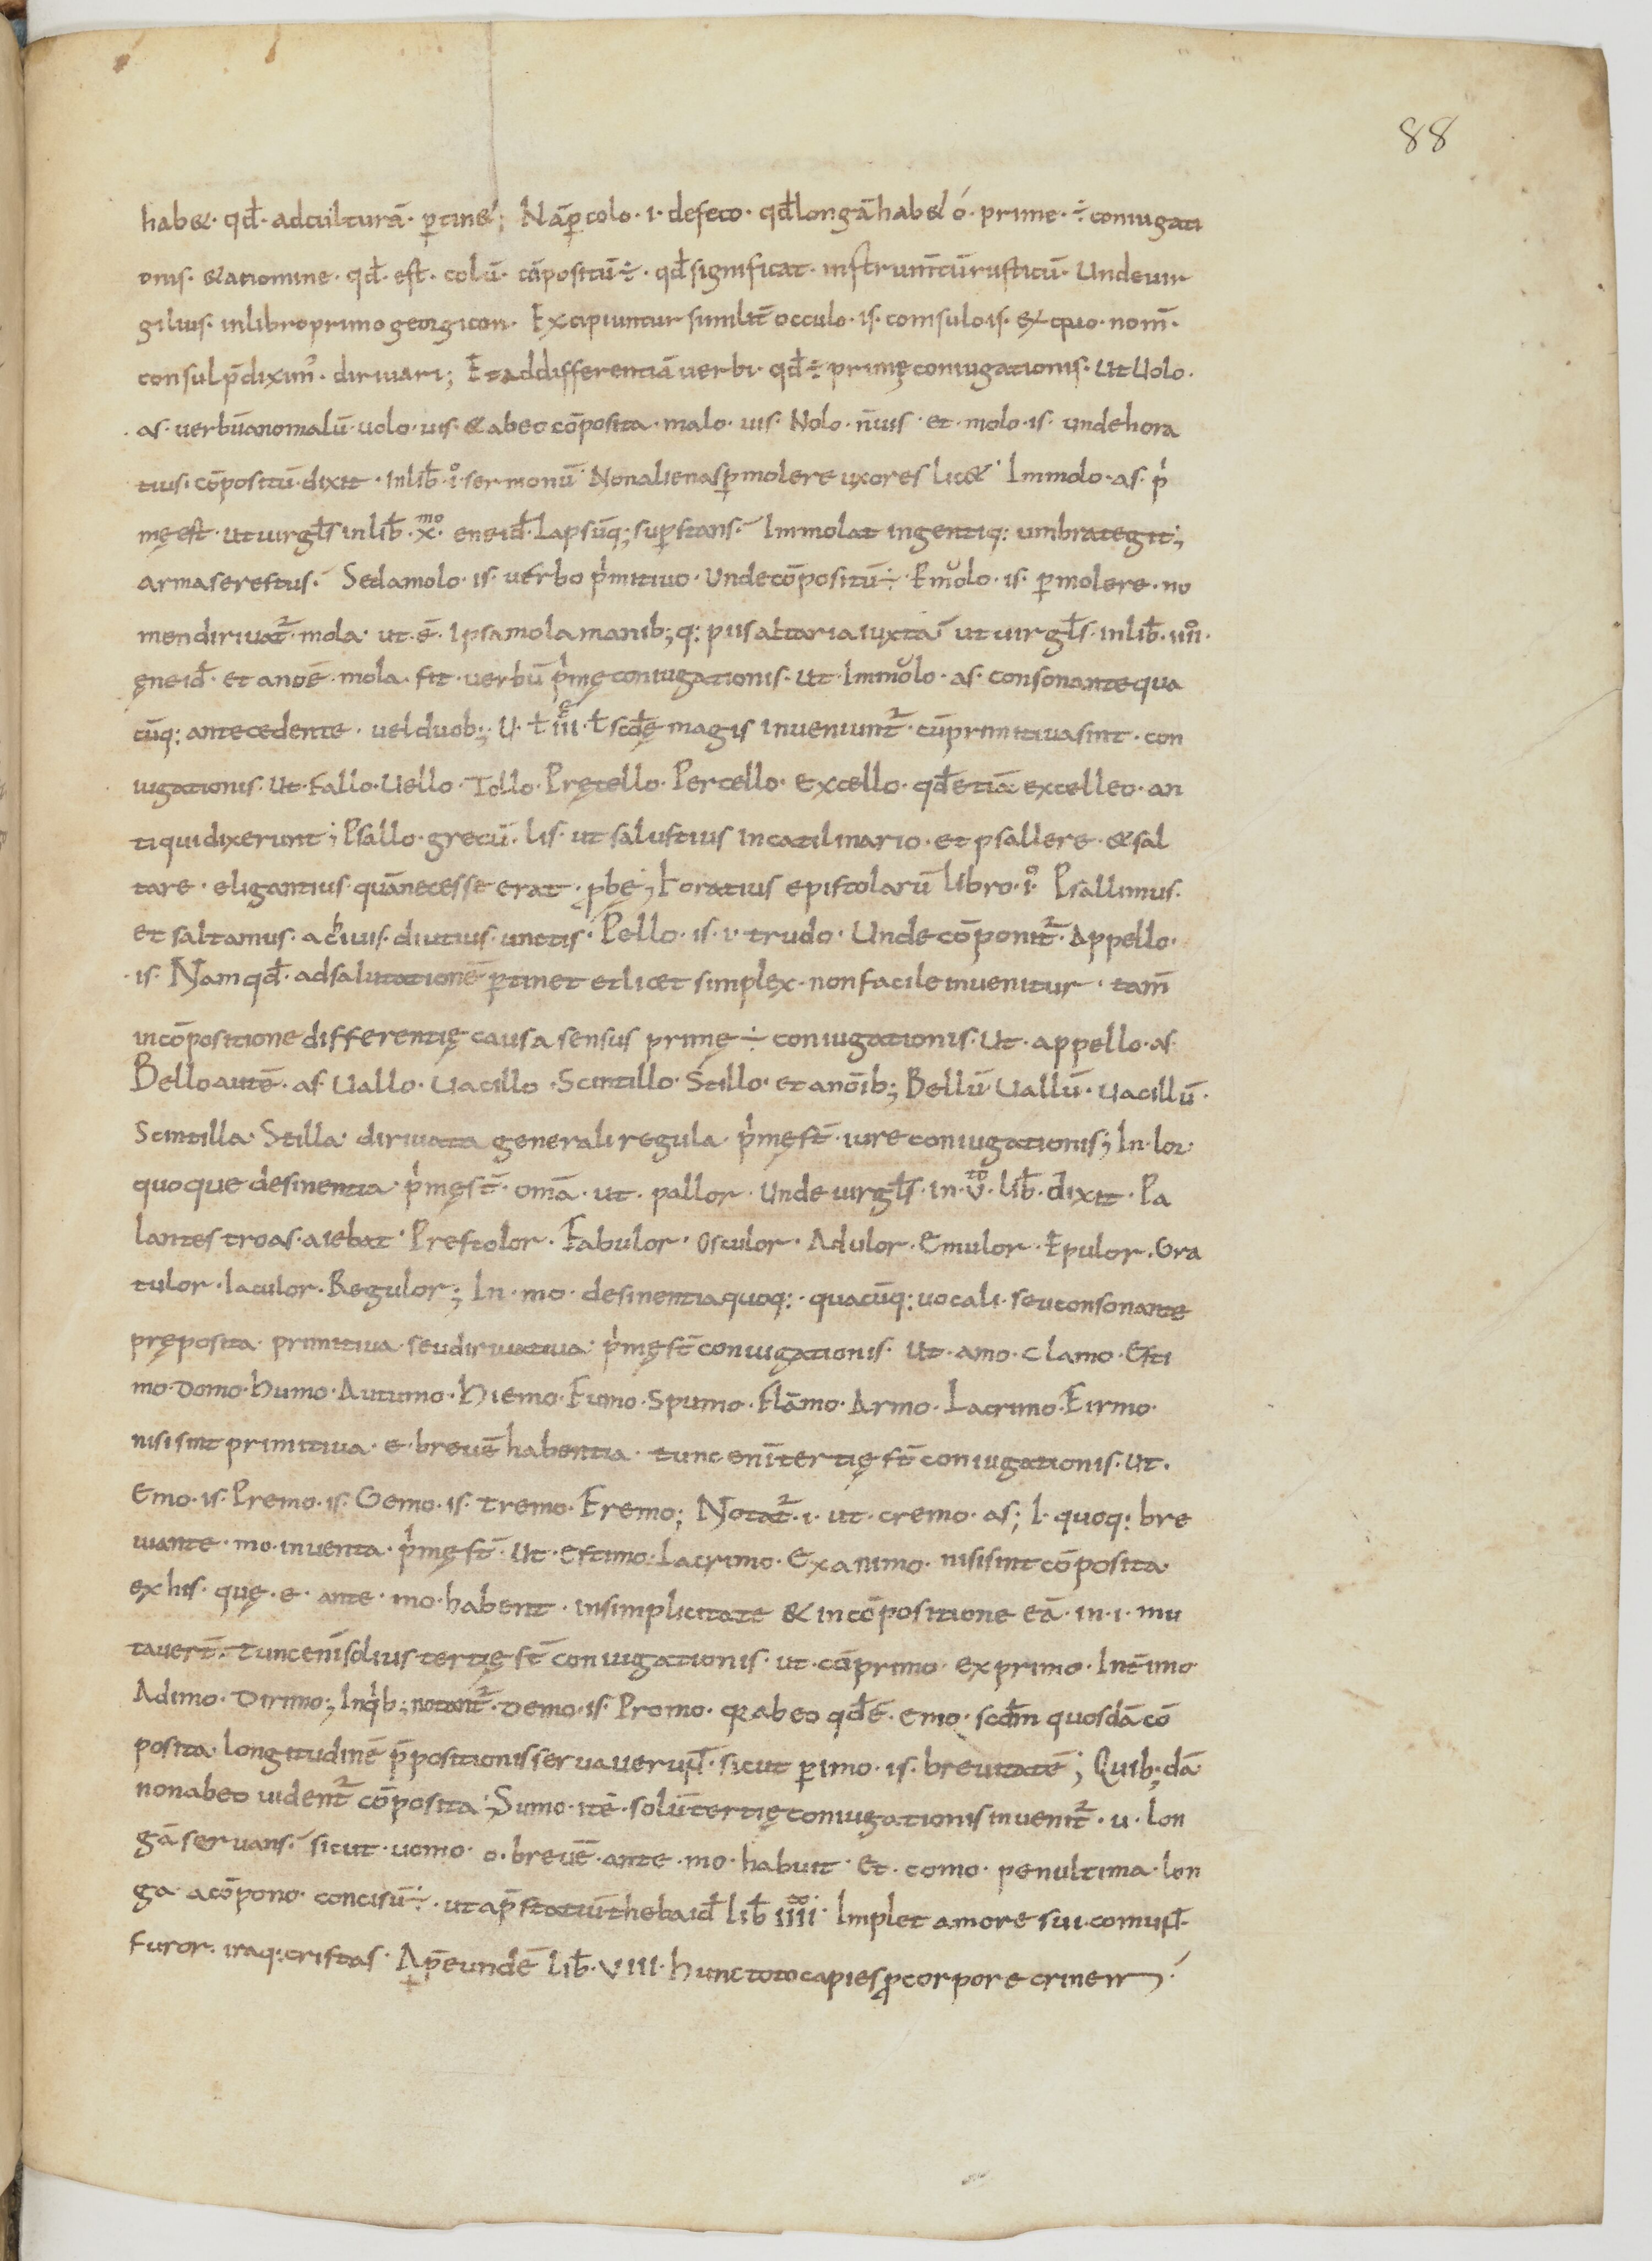 88
hab&. qđ. adculturā. ꝑtin&; Nāꝑcolo. i. defeco. qđlongāhab& ó. prime. ÷ coniugati
onis. &anomine. qđ. est. colū. cōpositū÷. qđsignificat. instrum̄tūrusticū. Undeuir
gilius. inlibroprimogeorgicon. Excipiuntur similit̄ occulo. is. consulo is. ex quo. nom̄.
consulp̄diximꝰ. diriuari; Et addifferentiā uerbi. qđ÷ primę coniugationis. Ut Uolo.
as. uerbūanomalū. uolo. uis. &abeo cōposita. malo. uis. Nolo. n̄uis. et. molo. is. undehora
tius. cōpositū. dixit. Inlib̄. i̊. sermonū Nonalienasꝑmolere uxores lic& Immolo. as. p̍
męest. ut uirgłs inlib̄. x̊. eneid̄. Lapsūq; suꝑstans. Immolat ingentiq: umbrategit;
armaserestus. Sedamolo. is. uerbo p̍mitiuo. Undecōpositū÷. Emolo. is. ꝑmolere. no
mendiriuat᷑. mola. ut. ē. Ipsamolamanib; q: piisaltariaiuxta ut uirgłs. inlib̄. iiii̊.
ęneid̄. et anoē. mola. fit. uerbū p̍męconiugationis. Ut. Immolo. as. consonantequa
cūq: antecedente. uelduob; U. ł iii ł scđę magis inueniunt᷑. cūprimitiuasint. con
iugationis. Ut. Fallo. Uello. Tollo. Pręcello. Percello. Excello. qđetiā excelleo. an
tiquidixerunt; Psallo. grecū. lis. ut salustius incatilinario. et psallere. &sal
tare. eligantius. quānecesse erat. ꝓbę; horatius epistolarū libro. i̊. Psallimus.
et saltamus. achiuis. diutius. unctis. Pello. is. i. trudo. Unde cōponit᷑. Appello.
is. Namqđ. adsalutationē ꝑtinet etlicet simplex. nonfacileinuenitur. tam̄
incōpositione differentię causa sensus primę ÷ coniugationis. Ut. appello. as.
Belloautē. as. Uallo. Uacillo. Scintillo. Stillo. et anoīb; Bellū. Uallū. Uacillū.
Scintilla. Stilla. diriuata generaliregula. p̍męst̄. iure coniugationis; In. lor.
quoque desinentia. p̍męst̄. om̄a. ut. pallor. Unde uirgłs. in. v̊. lib̄. dixit. Pa
lantes troas. aiebat. Prestolor. Fabulor. Osculor. Adulor. Emulor. Epulor. Gra
tulor. Iaculor. Regulor; In. mo. desinentiaquoq:. quacūq: uocali. seuconsonante
pręposita. primitiua. seudiriuatiua. p̍męst̄ coniugationis. Ut. amo. clamo. Esti
mo. Domo. humo. Autumo. hiemo. Fumo. Spumo. Flāmo. Armo. Lacrimo. Firmo.
nisisint primitiua. e. breuē habentia. tunc enī tertię st̄ coniugationis. Ut.
Emo. is. Premo. is. Gemo. is. tremo. Fremo; Notat᷑. i. ut. cremo. as; I. quoq: bre
uiante. mo. inuenta. p̍męst̄. Ut. Estimo. Lacrimo. Exanimo. nisisint cōposita.
exhis. quę. e. ante. mo. habent. insimplicitate & incōpositione eā. in. i. mu
tauert̄. Tuncenī solius tertię st̄ coniugationis. ut. cōprimo. exprimo. Intimo
Adimo. Dirimo; Inq̍b; notant᷑. Demo. is. Promo. qꝛ abeo qđē. emo. scđm quosdā cō
posita. longitudinē p̄positionisseruauerunt. sicut ꝑimo. is. breuitatē; Quib; dā
nonabeo uident᷑ cōposita; Sumo. itē. solūtertięconiugationisinuenit᷑. u. lon
gāseruans. sicut. uomo. o. breuē. ante. mo. habuit. Et. como. penultima. lon
ga. acōpono. concisū÷. utap̄statiūthebaid̄ lib̄ iiii̊. Implet amore sui. comunt
furor. iraq: cristas. Ap̄eundē lib̄. VIII. hunctotocapiesꝓcorpore crinem